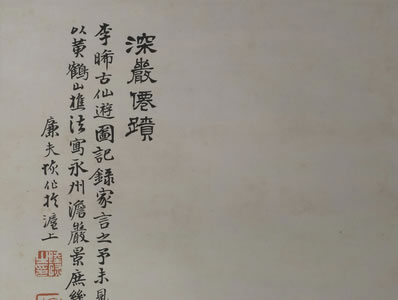 深巖僊蹟
李晞古仙遊圖記錄家言之予未見
以黃鶴山樵法寫永州澹巖景庶幾
廉夫恢作於滬上